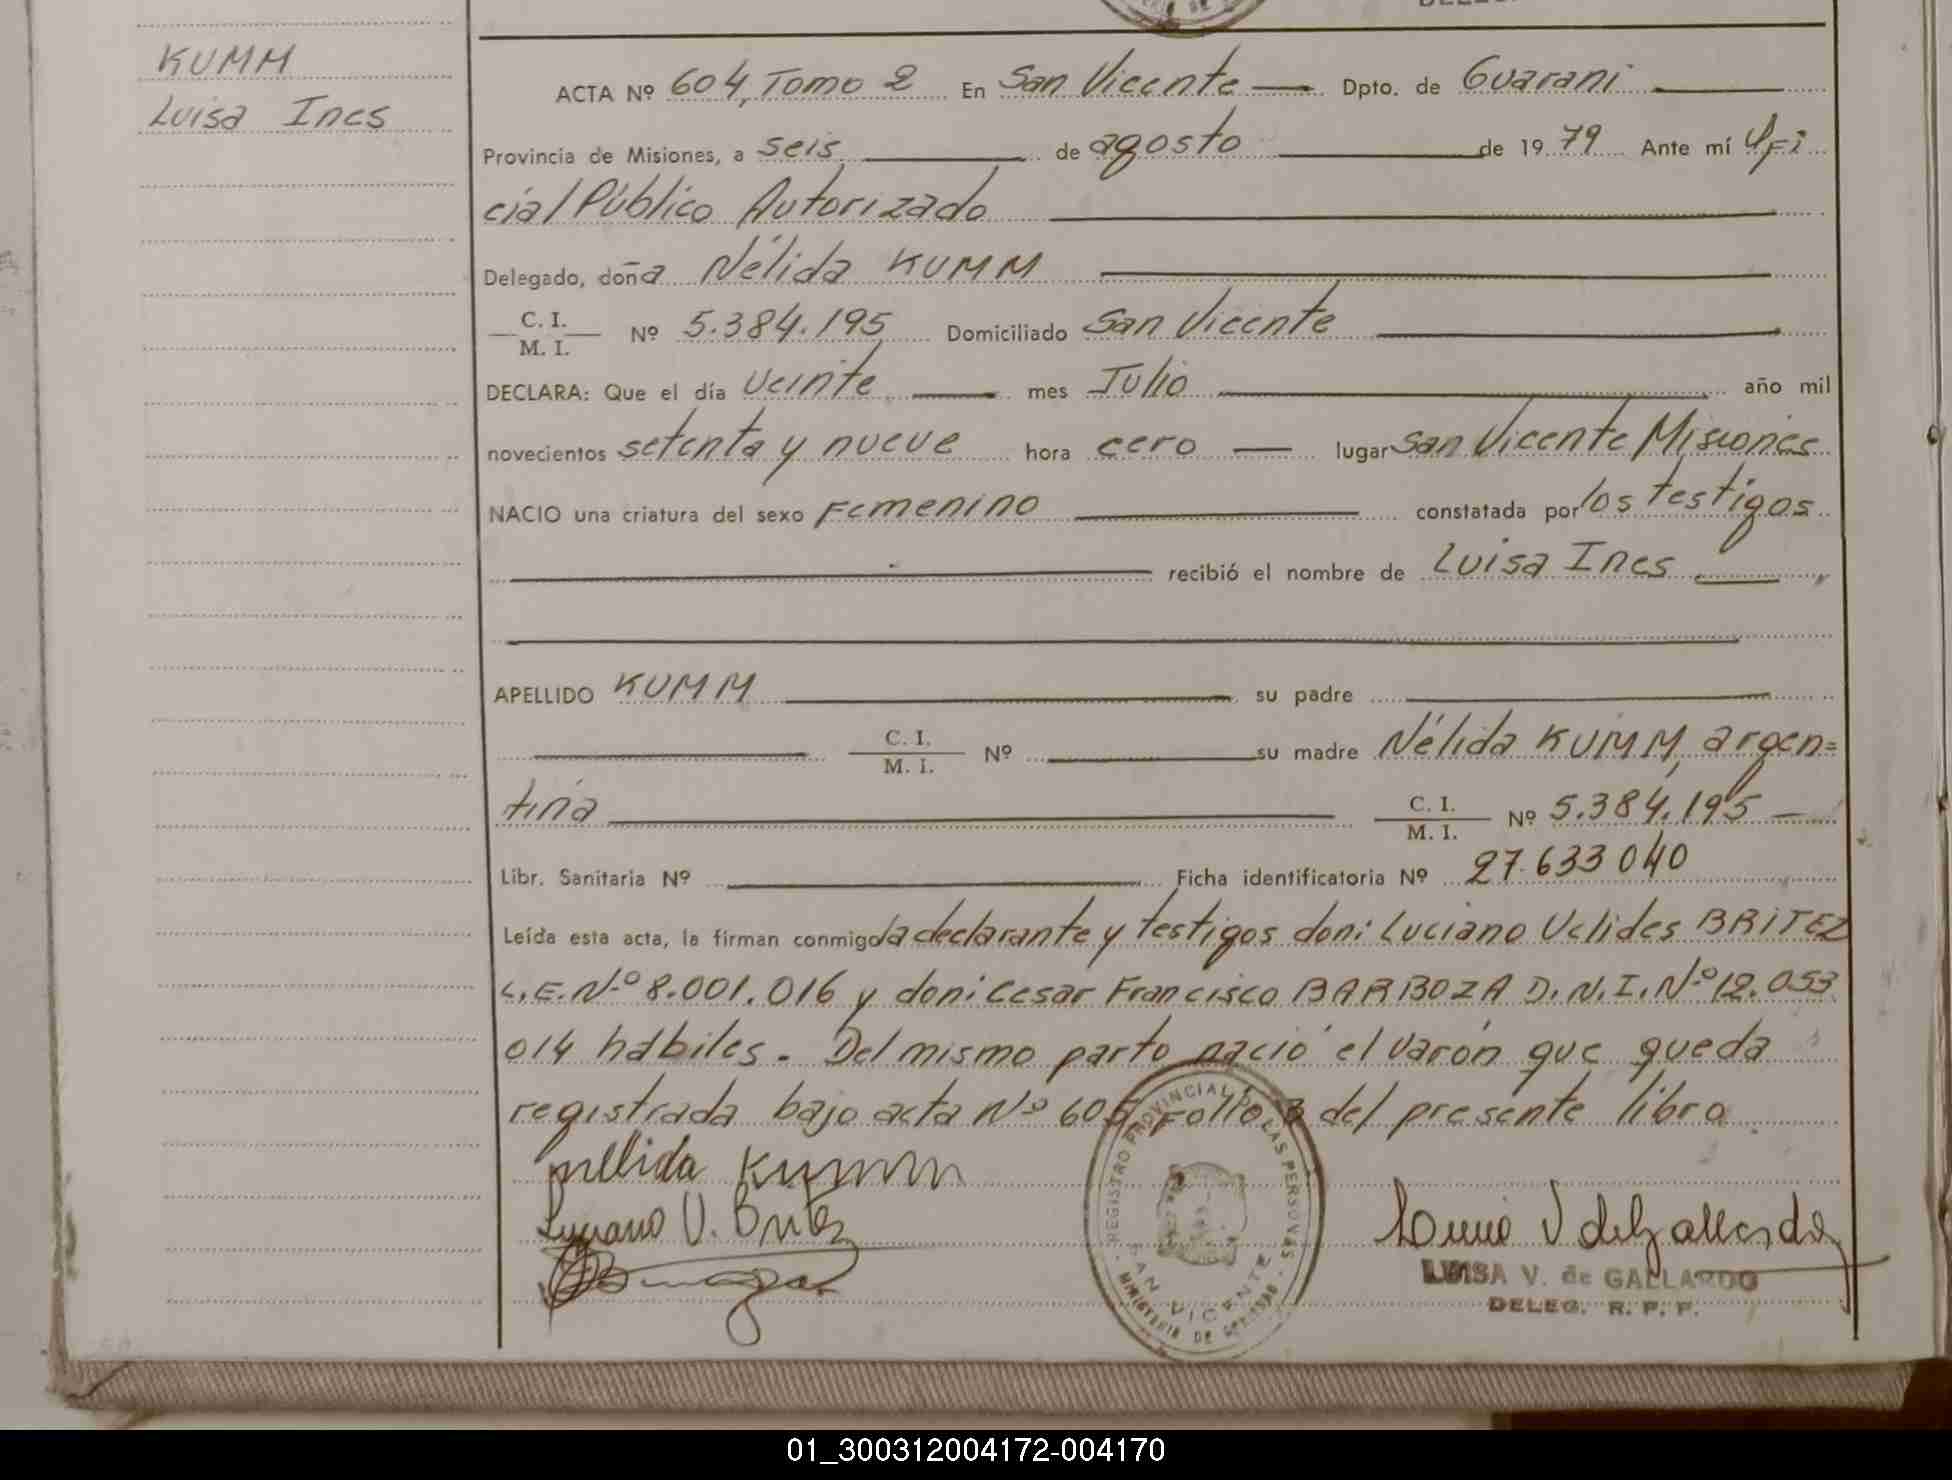 KUMM
Luisa Ines
ACTA Nº 604, Tomo 2 En San Vicente Dpto. de Guarani
Provincia de Misiones, a seis de agosto de 1979 Ante mí Ofi
cial Público Autorizado
Delegado, doña Nélida KUMM
C. I.
M. I. Nº 5.384.195 Domiciliado San Vicente
DECLARA: Que el día veinte mes Julio año mil
novecientos setenta y nueve hora cero lugar San Vicente Misiones
NACIO una criatura del sexo Femenino constatada por los testigos
recibió el nombre de Luisa Ines
APELLIDO KUMM su padre
C. I.
M. I. Nº su madre Nélida KUMM, argen=
tina C. I.
M. I. Nº 5.384.195
Libr. Sanitaria Nº Ficha identificatoria Nº 27.633 040
Leída esta acta, la firman conmigo la declarante y testigos don: Luciano Uclides BRITEZ
L.E. Nº 8.001.016 y don: Cesar Francisco BARBOZA D.N.I. Nº 12.053
014 hábiles. Del mismo parto nació el varón que queda
registrada bajo acta Nº 605, Folio 3 del presente libro
nellida Kumm
Luciano V. Britez
REGISTRO PROVINCIAL DE LAS PERSONAS
SAN VICENTE
MINISTERIO DE GOBIERNO
LUISA V. de GALLARDO
DELEG. R. P. P.
01_300312004172-004170